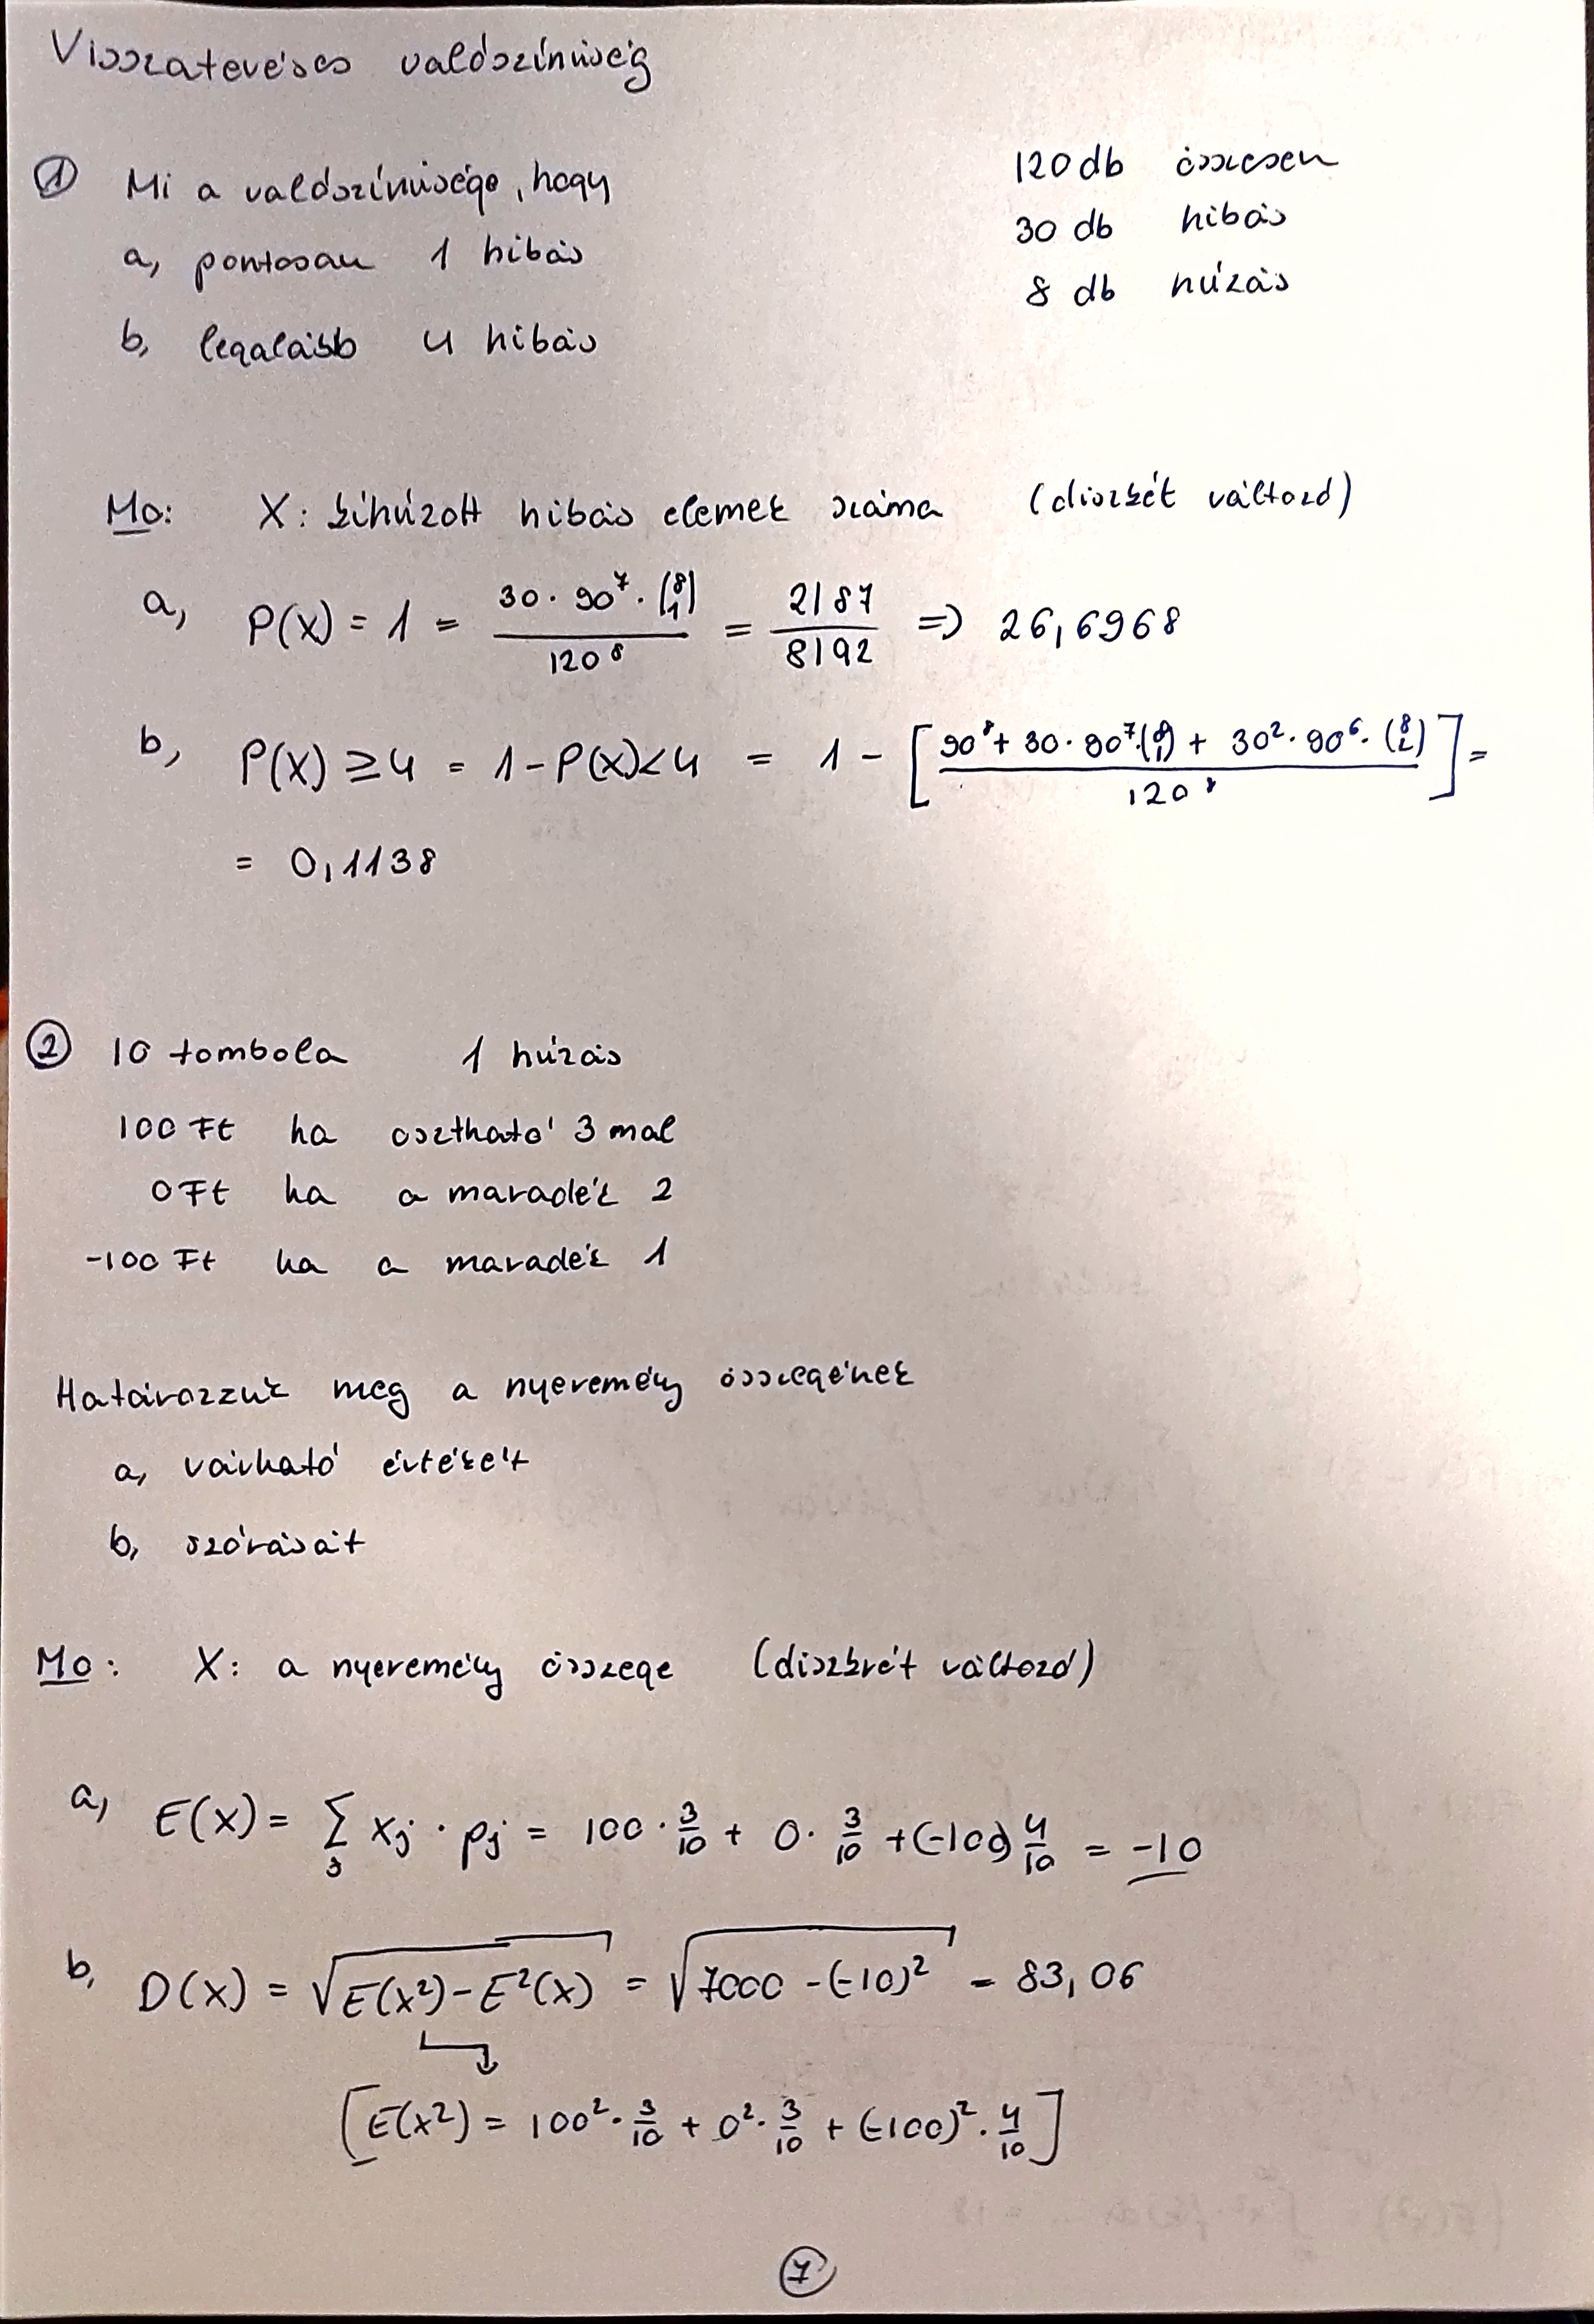 Visszatevéses valószínűség
① Mi a valószínűsége, hogy
120 db összesen
a, pontosan 1 hibás
30 db hibás
b, legalább 4 hibás
8 db húzás
Mo: X: kihúzott hibás elemek száma (diszkét változó)
a, P(X) = 1 = \frac{30 · 90^7 · \binom{8}{1}}{120^8} = \frac{2187}{8192} => 26,6968
b, P(X) ≥ 4 = 1 - P(X) < 4 = 1 - [\frac{90^8 + 30 · 90^7 · \binom{8}{1} + 30^2 · 90^6 · \binom{8}{2}}{120^8}] =
= 0,1138
② 10 tombola 1 húzás
100 Ft ha osztható 3 mal
0 Ft ha a maradék 2
-100 Ft ha a maradék 1
Határozzuk meg a nyeremény összegének
a, várható értékét
b, szórását
Mo: X: a nyeremény összege (diszkrét változó)
a, E(X) = \sum_{j} x_j · p_j = 100 · \frac{3}{10} + 0 · \frac{3}{10} + (-100) \frac{4}{10} = -10
b, D(X) = \sqrt{E(x^2) - E^2(x)} = \sqrt{7000 - (-10)^2} = 83,06
[E(x^2) = 100^2 · \frac{3}{10} + 0^2 · \frac{3}{10} + (-100)^2 · \frac{4}{10}]
⑦